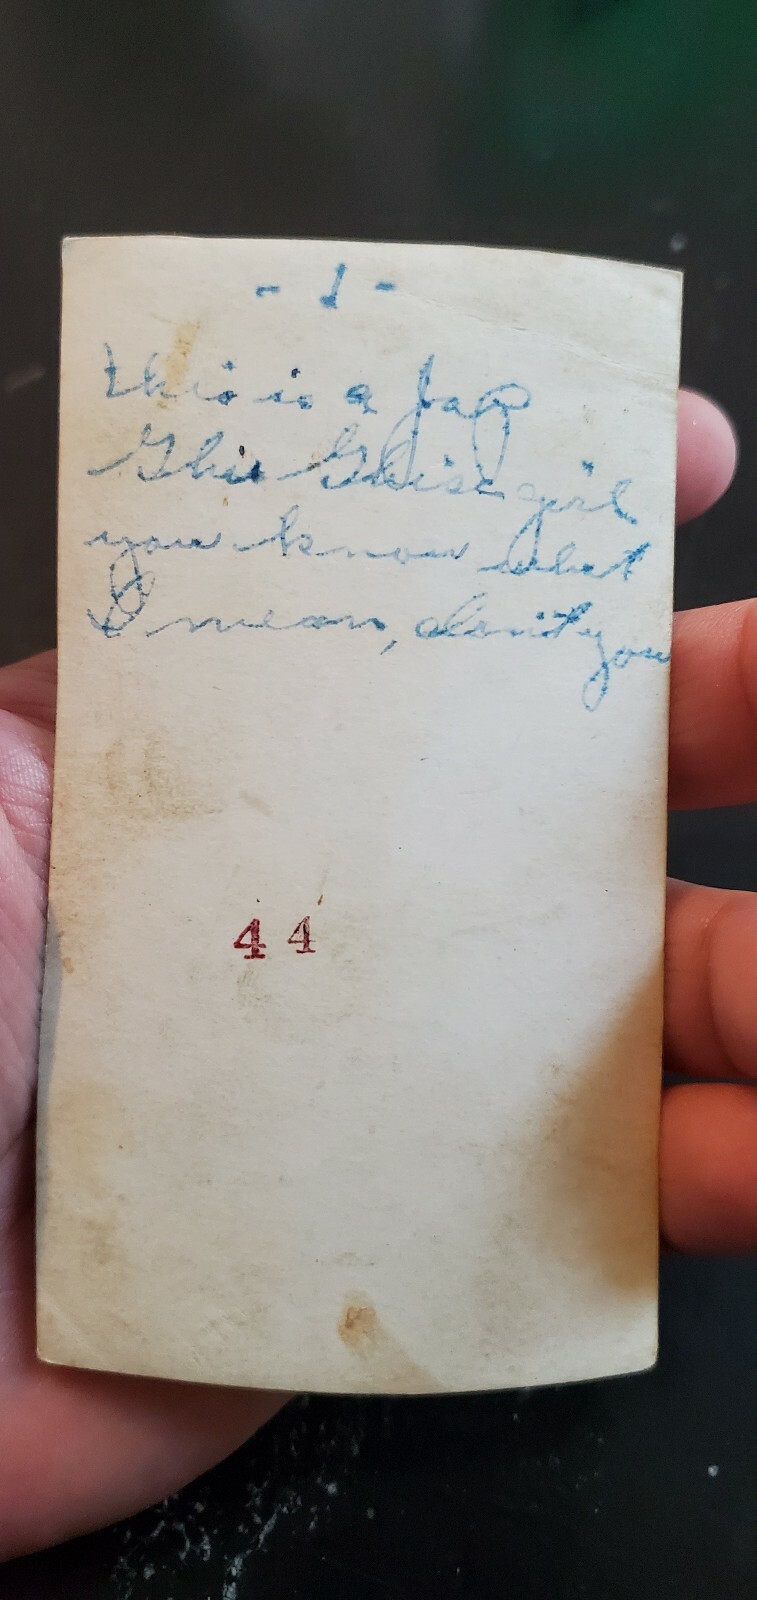 - 1 -
this is a Jap
Ghisi girl
you know what
I mean, don't you
44